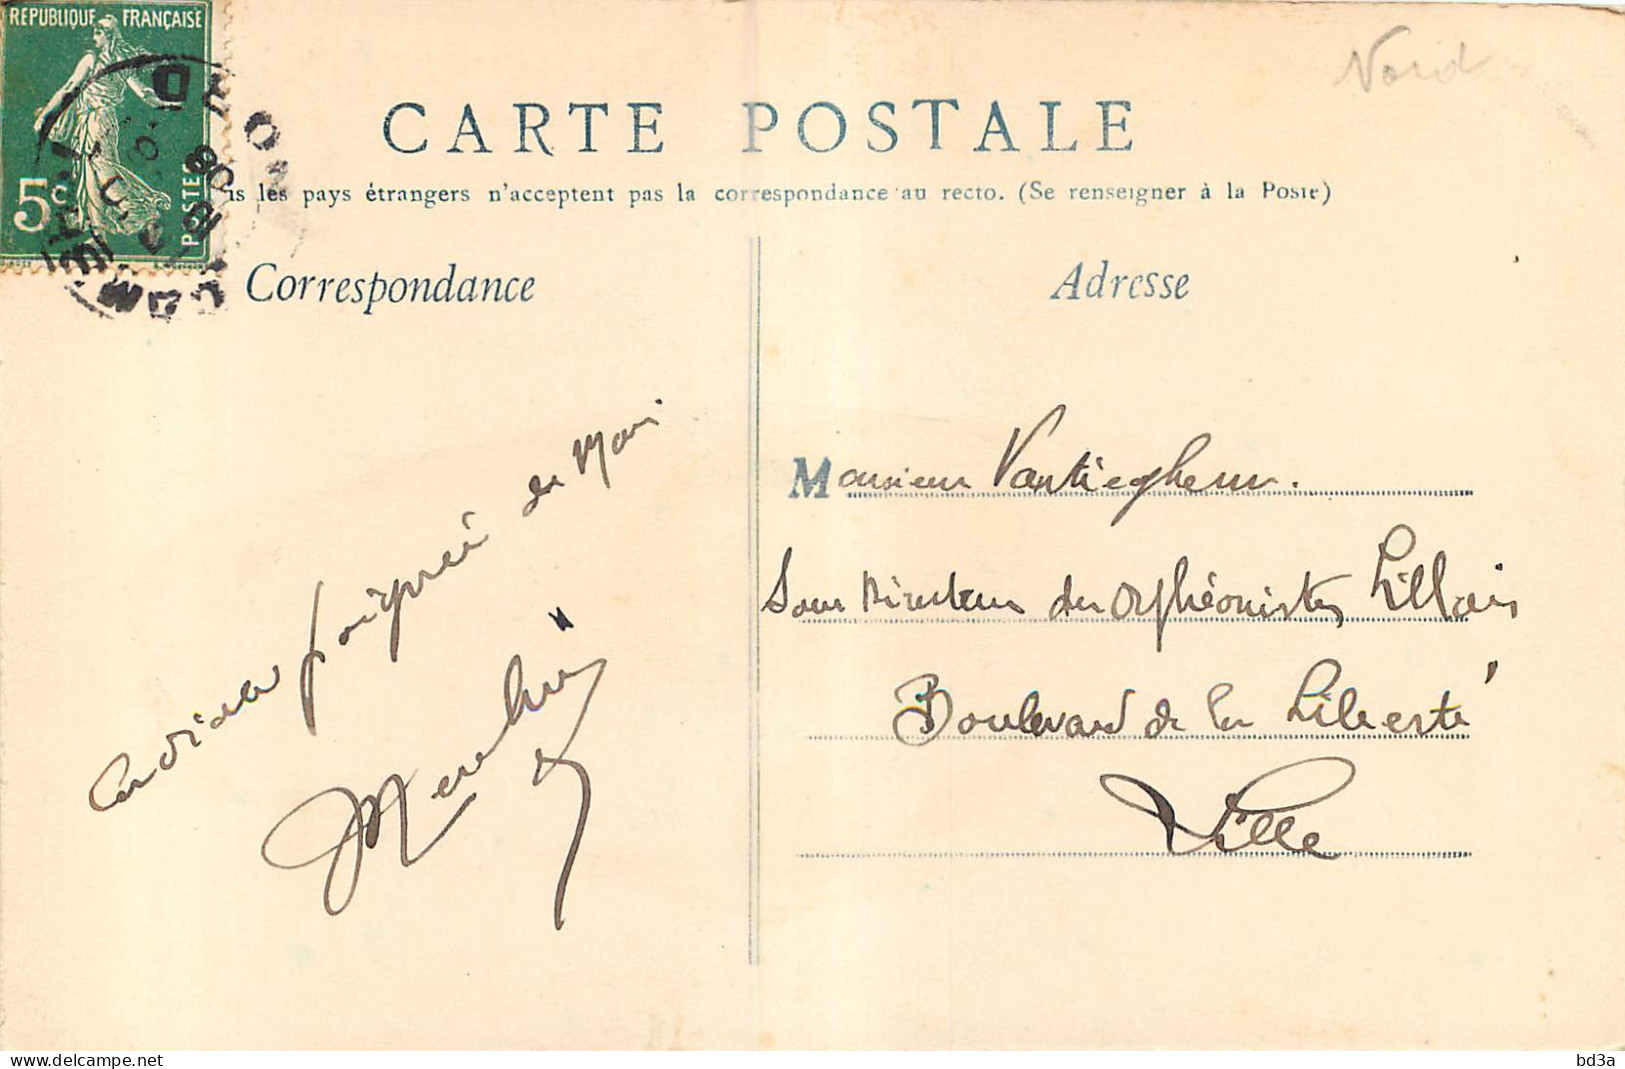 RÉPUBLIQUE FRANÇAISE
5c
POSTES
DIJON
Nord
CARTE POSTALE
us les pays étrangers n'acceptent pas la correspondance au recto. (Se renseigner à la Poste)
Correspondance
Adresse
Cordiale poignée de Main
Monsieur Vantieghem.
Sous Directeur des Orphéonistes Lillois
Boulevard de la Liberté
Lille
delcampe.net
bd3a